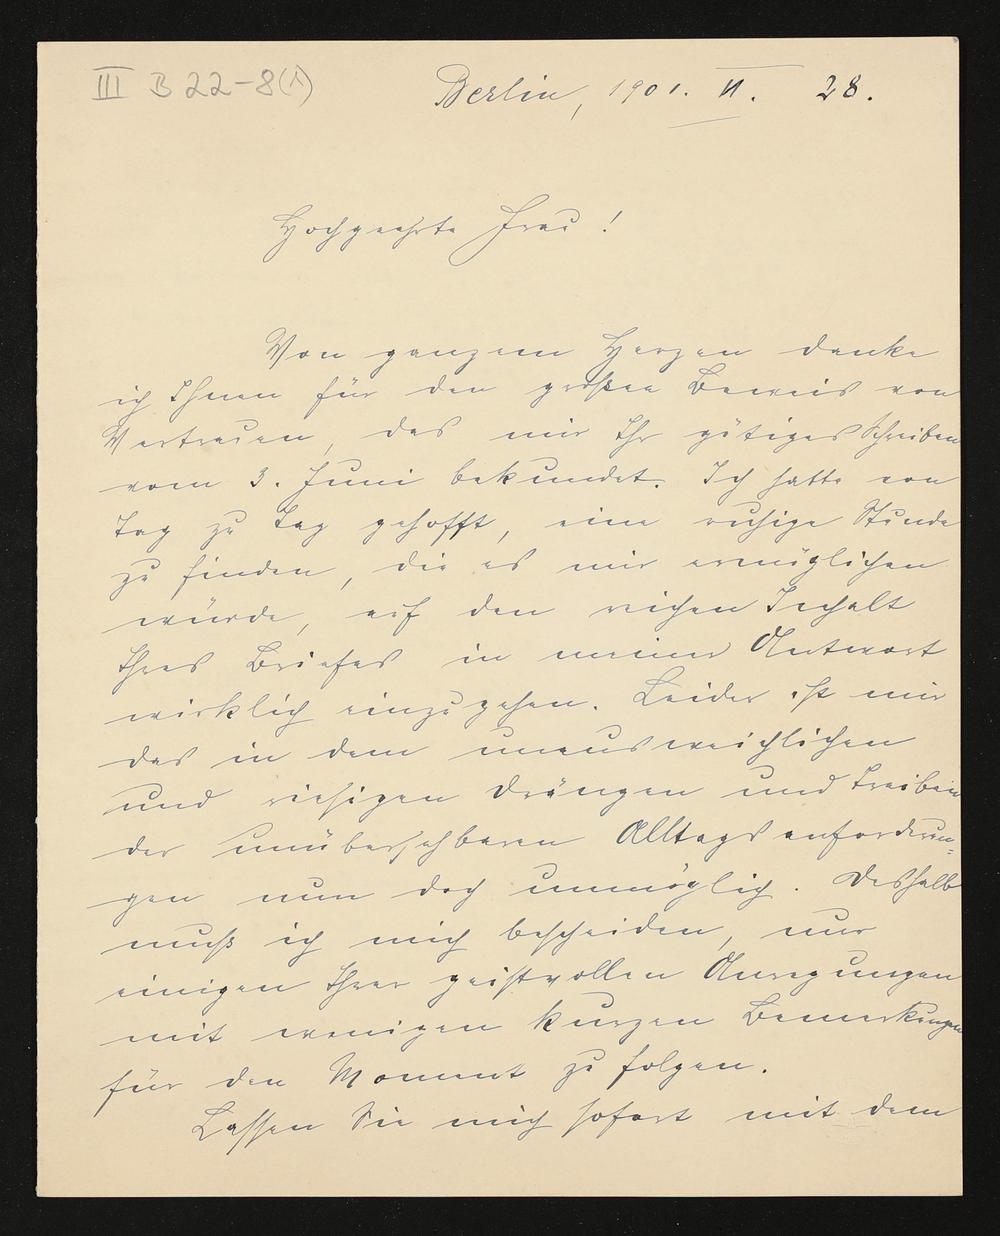 III B 22-8(1)
Berlin, 1901. VI. 28.
Hochgeehrte Frau!
Von ganzem Herzen danke
ich Ihnen für den großen Beweis von
Vertrauen, das mir Ihr gütiges Schreiben
vom 3. Juni bekundet. Ich hatte von
Tag zu Tag gehofft, eine ruhige Stunde
zu finden, die es mir ermöglichen
würde, auf den reichen Inhalt
Ihres Briefes in meiner Antwort
wirklich einzugehen. Leider ist mir
das in dem unausweichlichen
und riesigen Drängen und Treiben
der unübersehbaren Alltagsanforderun-
gen nun doch unmöglich. Deshalb
muß ich mich bescheiden, nur
einigen Ihrer geistvollen Anregungen
mit wenigen kurzen Bemerkungen
für den Moment zu folgen.
Lassen Sie mich sofort mit dem